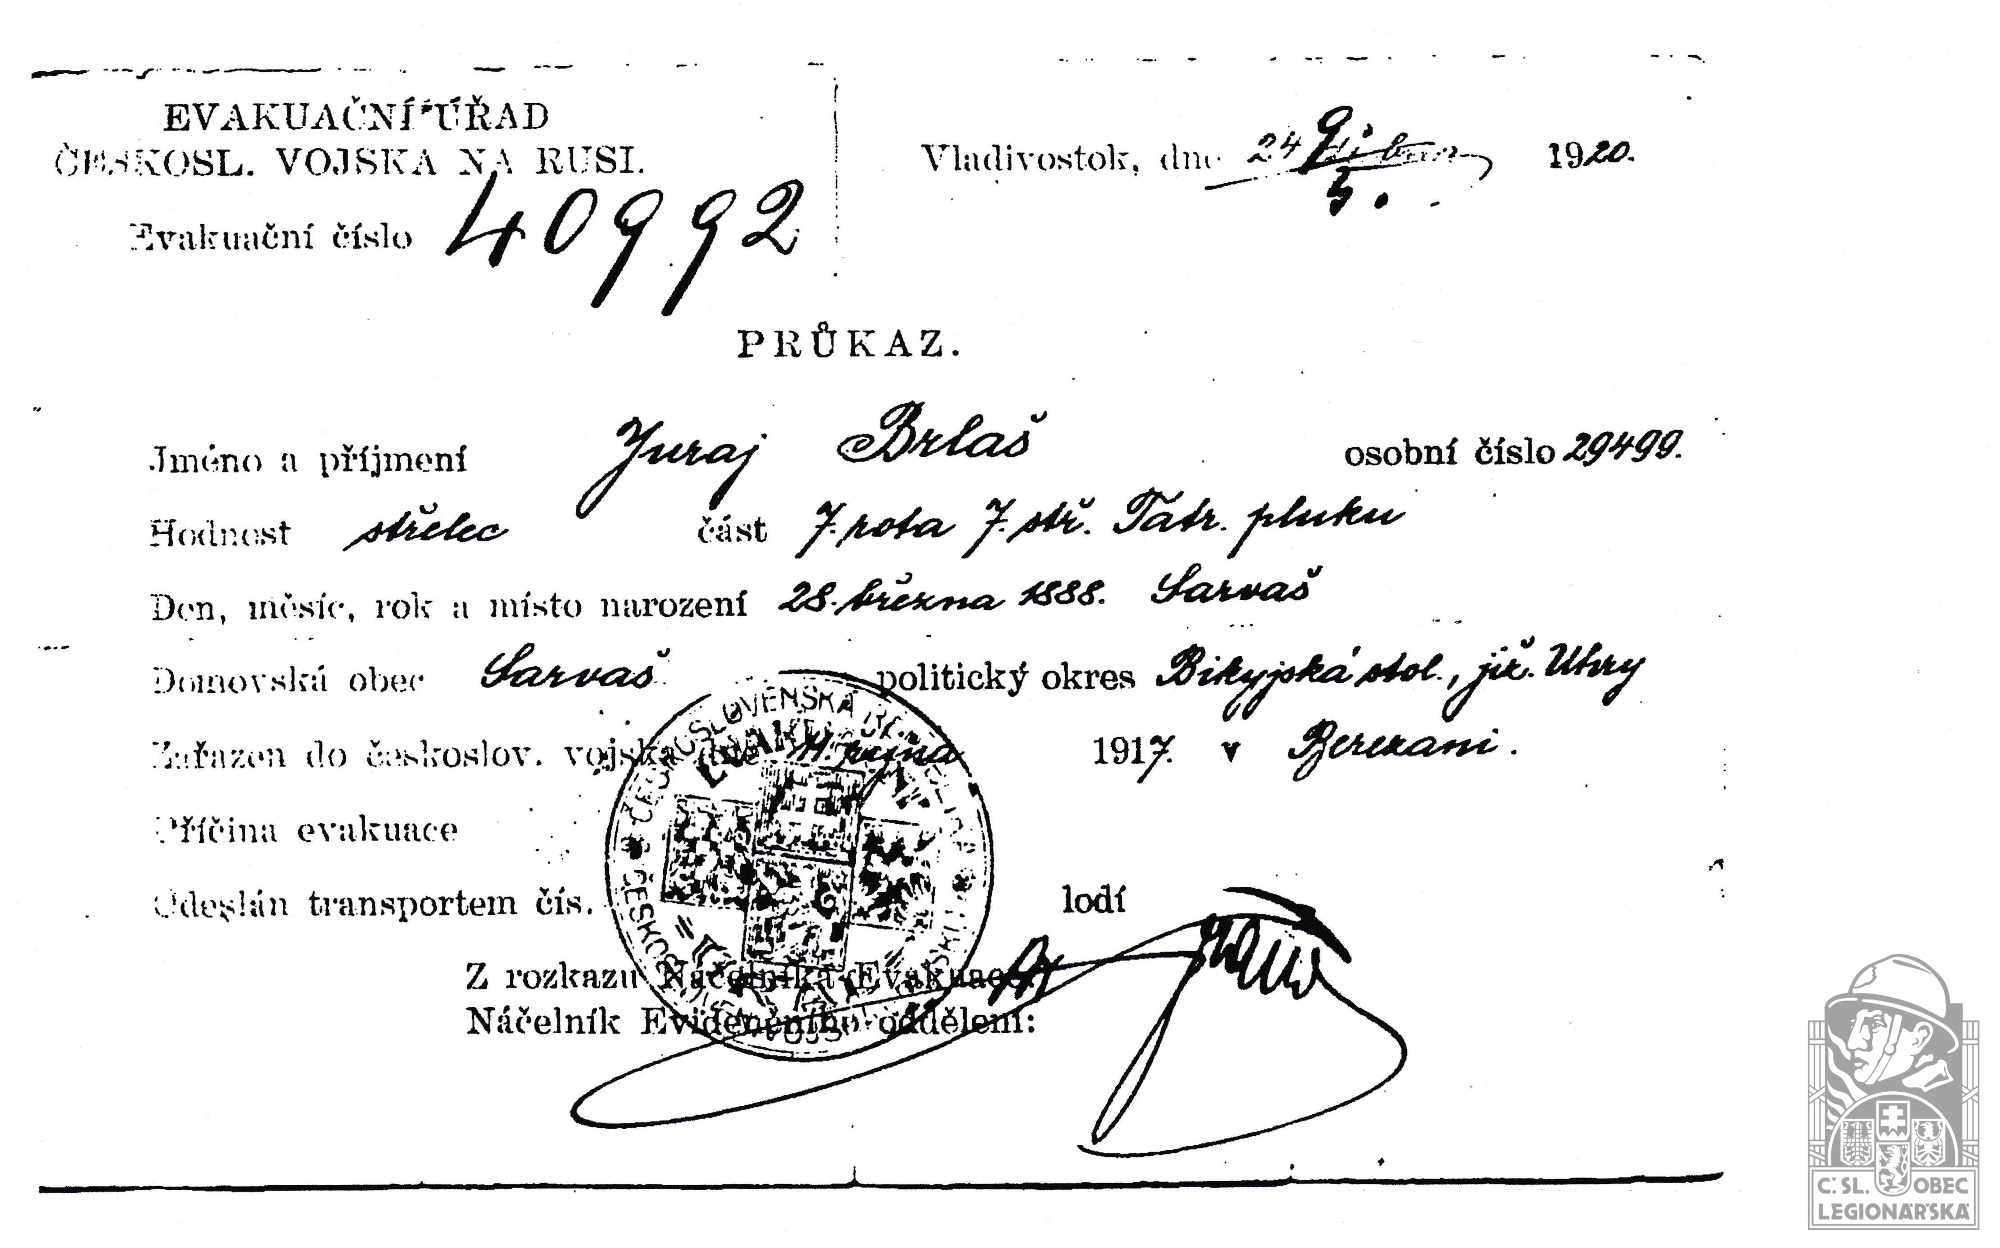 EVAKUAČNÍ ÚŘAD
ČESKOSL. VOJSKA NA RUSI.
Evakuační číslo 40992
Vladivostok, dne 24 5. 1920.
PRŮKAZ.
Jméno a příjmení Juraj Brlaš osobní číslo 29499.
Hodnost střelec část 7. rota 7. stř. Tatr. pluku
Den, měsíc, rok a místo narození 28. března 1888. Sarvaš
Domovská obec Sarvaš politický okres Bikyjská stol., již. Uhry
Zařazen do českoslov. vojska dne 11. října 1917. v Berezani.
Příčina evakuace
Odeslán transportem čís. lodí
Z rozkazu Náčelníka Evakuace
Náčelník Evidenčního oddělení:
ČESKOSLOVENSKÁ
Č. SL. OBEC
LEGIONÁŘSKÁ